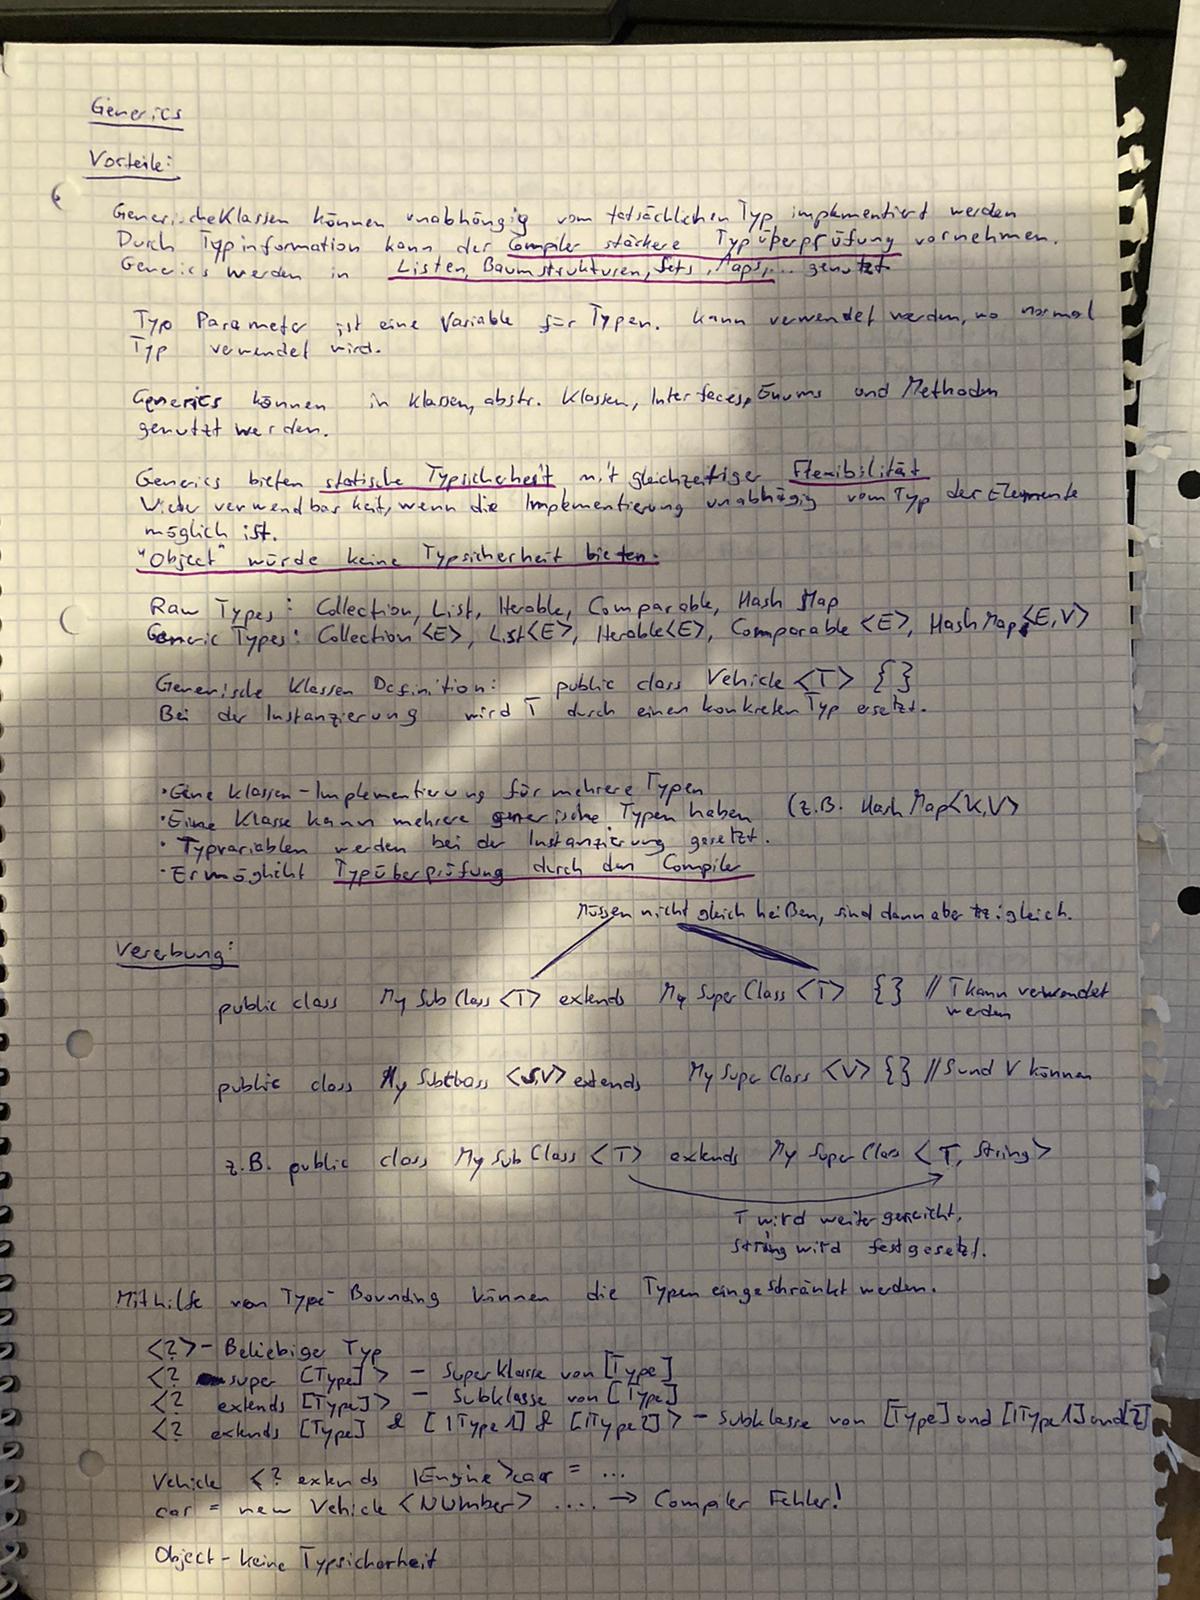 Generics
Vorteile:
GenerischeKlassen können unabhängig vom tatsächlichen Typ implementiert werden
Durch Typinformation kann der Compiler stärkere Typüberprüfung vornehmen.
Generics werden in Listen, Baumstrukturen, Sets, Maps,... genutzt
Typ Parameter ist eine Variable für Typen. Kann verwendet werden, wo normal
Typ verwendet wird.
Generics können in Klassen, abstr. Klassen, Interfaces, Enums und Methoden
genutzt werden.
Generics bieten statische Typsicherheit mit gleichzeitiger Flexibilität
Wieder verwendbarkeit, wenn die Implementierung unabhägig vom Typ der Elemente
möglich ist.
"Object" würde keine Typsicherheit bieten.
Raw Types: Collection, List, Iterable, Comparable, Hash Map
Generic Types: Collection <E>, List<E>, Iterable<E>, Comparable <E>, Hash Map<E,V>
Generische Klassen Definition: public class Vehicle <T> {}
Bei der Instanzierung wird T durch einen konkreten Typ ersetzt.
• Eine Klassen-Implementierung für mehrere Typen
• Eine Klasse kann mehrere generische Typen haben (z.B. Hash Map<K,V>
• Typvariablen werden bei der Instanzierung gesetzt.
• Ermöglicht Typüberprüfung durch den Compiler
Müssen nicht gleich heißen, sind dann aber gleich.
Vererbung:
public class My Sub Class <T> extends My Super Class <T> {} // T kann verwendet
werden
public class My Subclass <S,V> extends My Super Class <V> {} // S und V können
z.B. public class My Sub Class <T> extends My Super Class <T, String>
T wird weiter gereicht,
String wird festgesetzt.
Mithilfe von Type-Bounding können die Typen eingeschränkt werden.
<?> - Beliebiger Typ
<? super [Type]> - Superklasse von [Type]
<? extends [Type]> - Subklasse von [Type]
<? extends [Type] & [IType1] & [IType2]> - Subklasse von [Type] und [IType1] und [2]
Vehicle <? extends IEngine> car = ...
car = new Vehicle <NUmber> .... → Compiler Fehler!
Object - keine Typsicherheit